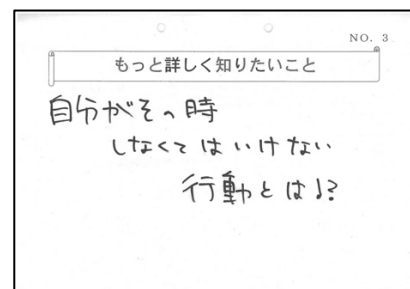 NO. 3
もっと詳しく知りたいこと
自分がその時
しなくてはいけない
行動とは!?